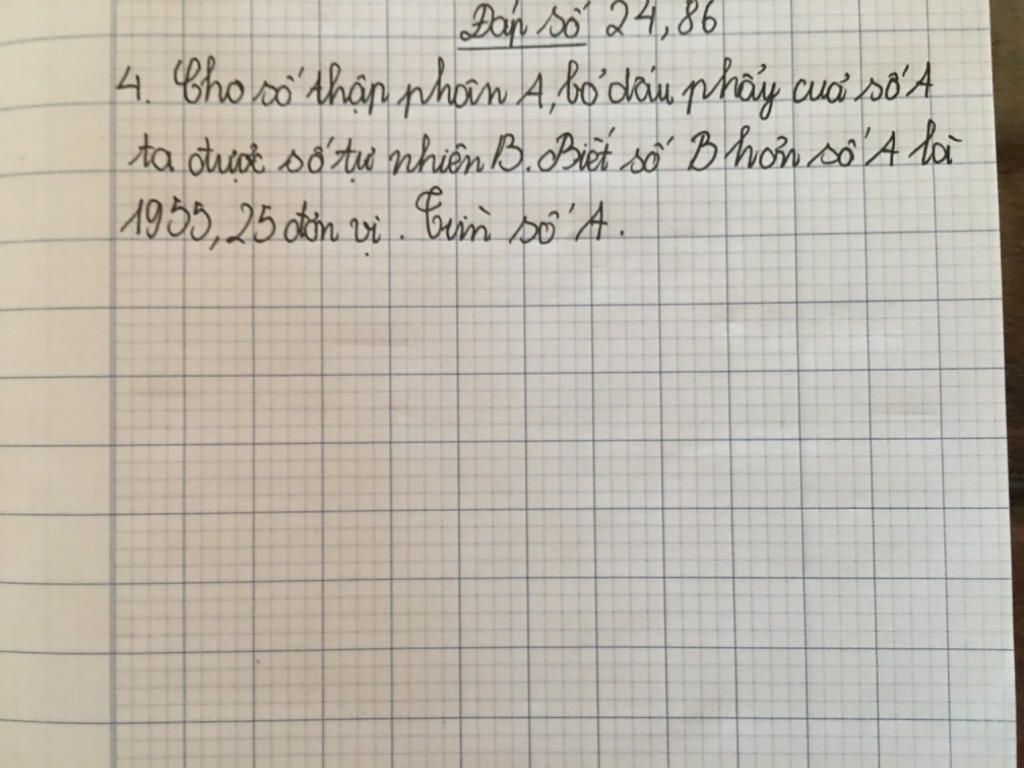 Đáp số 24,86
4. Cho số thập phân A, bỏ dấu phẩy của số A
ta được số tự nhiên B. Biết số B hơn số A là
1955,25 đơn vị. Tìm số A.